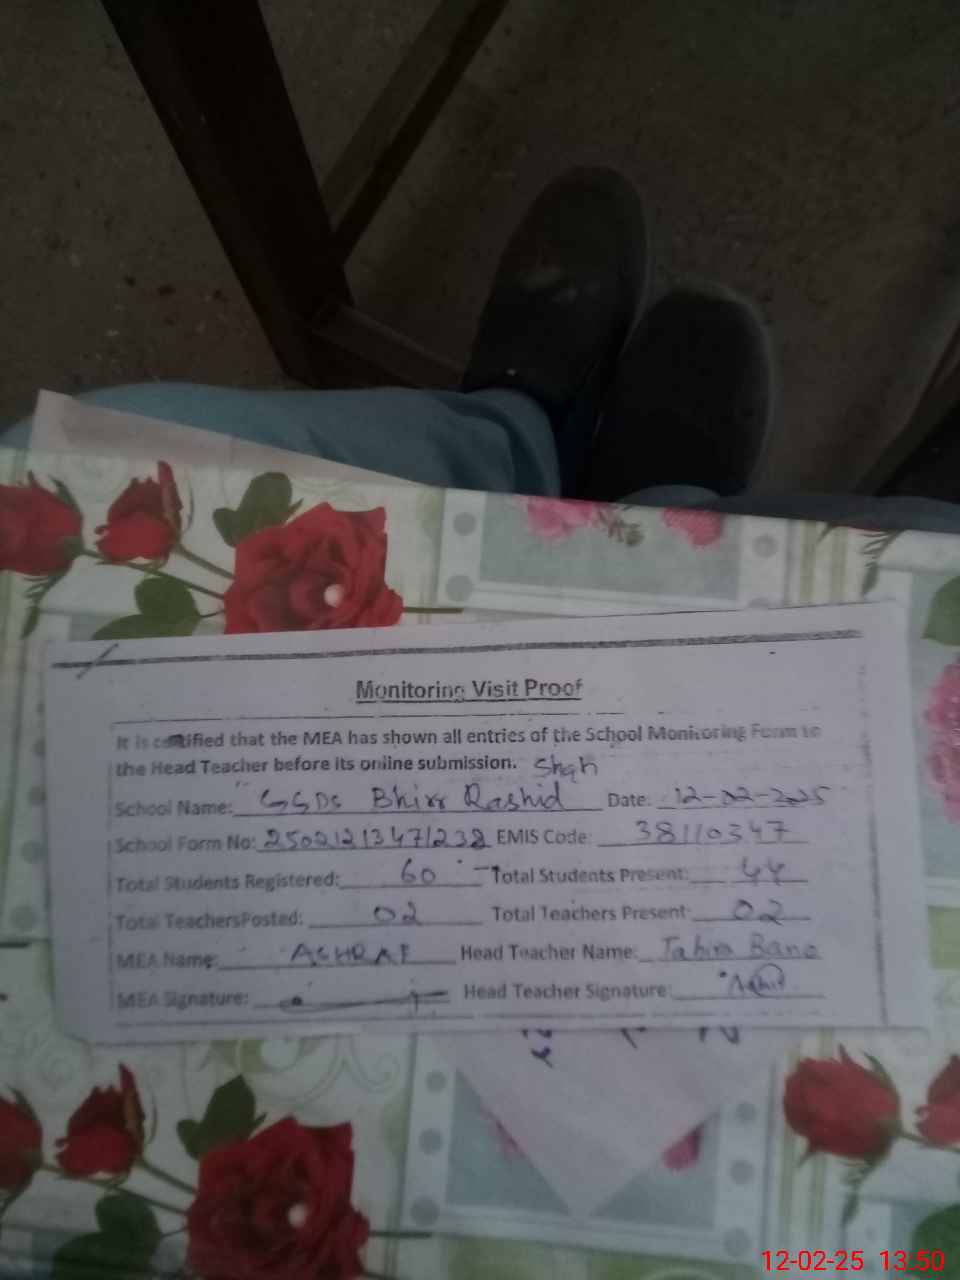 Monitoring Visit Proof
It is certified that the MEA has shown all entries of the School Monitoring Form to
the Head Teacher before its online submission. Shah
School Name: GGDS Bhirr Rashid Date: 12-02-2025
School Form No: 25021213471238 EMIS Code: 38110347
Total Students Registered: 60 Total Students Present: 44
Total TeachersPosted: 02 Total Teachers Present: 02
MEA Name: ASHRAF Head Teacher Name: Tahira Bano
MEA Signature: Head Teacher Signature:
12-02-25 13:50